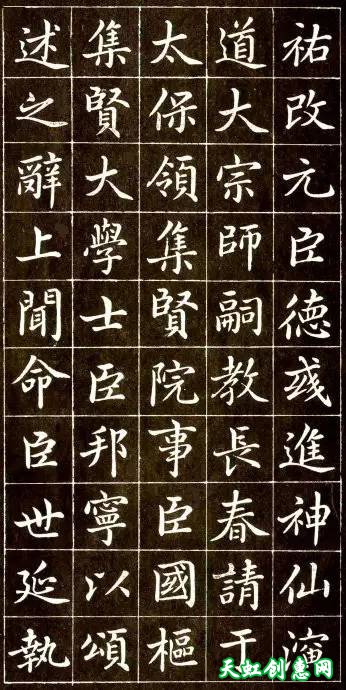 祐改元臣德彧進神仙演
道大宗師嗣教長春請于
太保領集賢院事臣國樞
集賢大學士臣邦寧以頌
述之辭上聞命臣世延執
天虹创意网